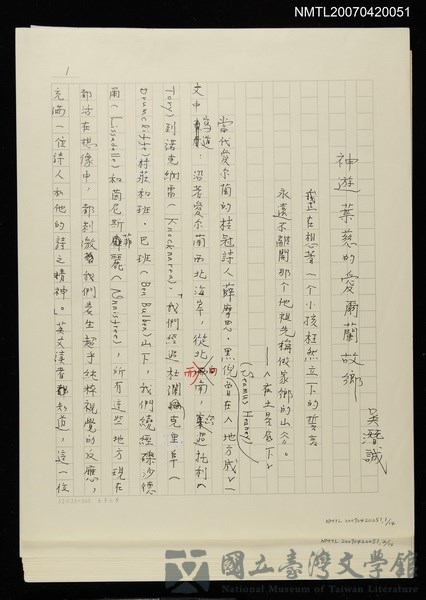 NMTL20070420051
1
神遊葉慈的愛爾蘭故鄉
吳潛誠
我正在想著一個小孩枉然立下的誓言
永遠不離開那個他祖先稱做家鄉的山谷。
當代愛爾蘭的桂冠詩人薛摩思・黑倪(Seamus Heaney)曾在〈地方感〉一
文中寫道:沿著愛爾蘭西北海岸,從北而南
Tory)到諾克納雷(Knocknarea),「我們經過杜
Drumcliffe)村莊和班・巴班(Ben Bulben)山下,我們繞經磔沙德
爾(Lissadell)和茵尼斯菲麗(Innisfree),所有這些地方現在
都活在想像中,都刺激我們產生超乎純粹視覺的反應,
充滿一位詩人和他的詩之精神」。英文讀者都知道,這一位
NMTL20070420051,1/16
NMTL 20070420051,2/16
國立臺灣文學館
National Museum of Taiwan Literature